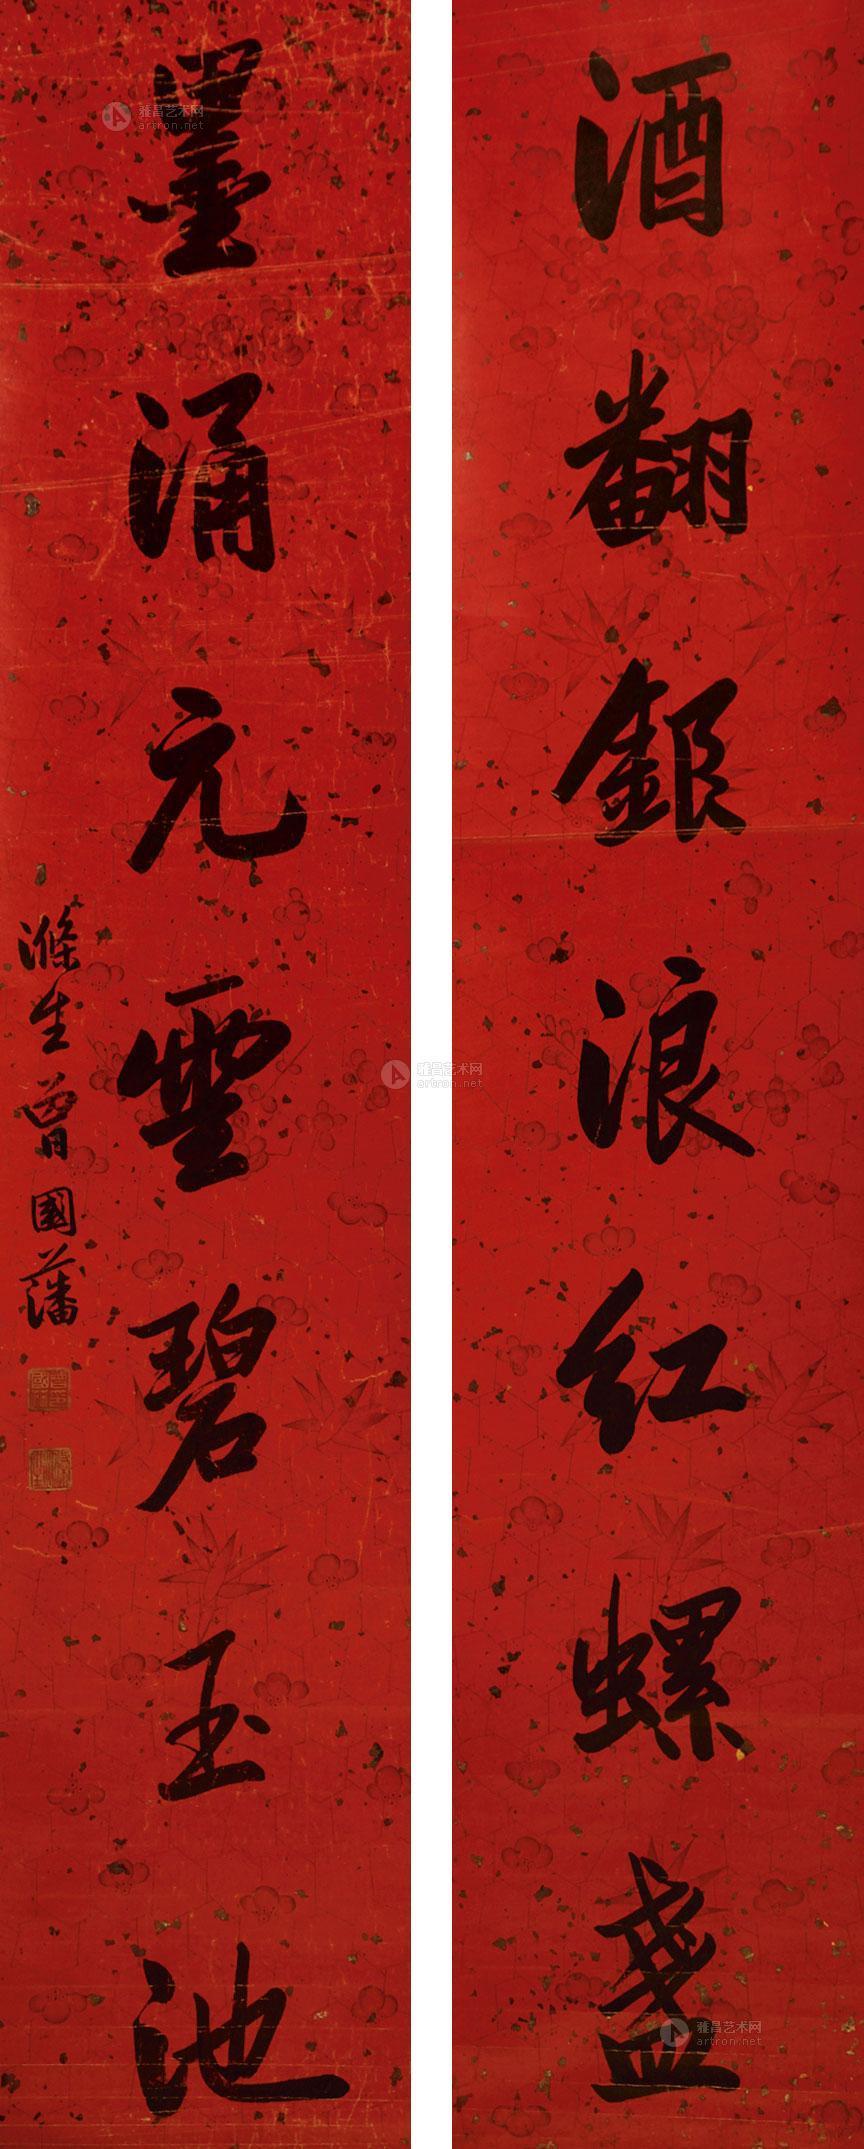 酒翻銀浪红螺盏
墨涌元靈碧玉池
滌生曾國藩
雅昌艺术网
artron.net
雅昌艺术网
artron.net
雅昌艺术网
artron.net